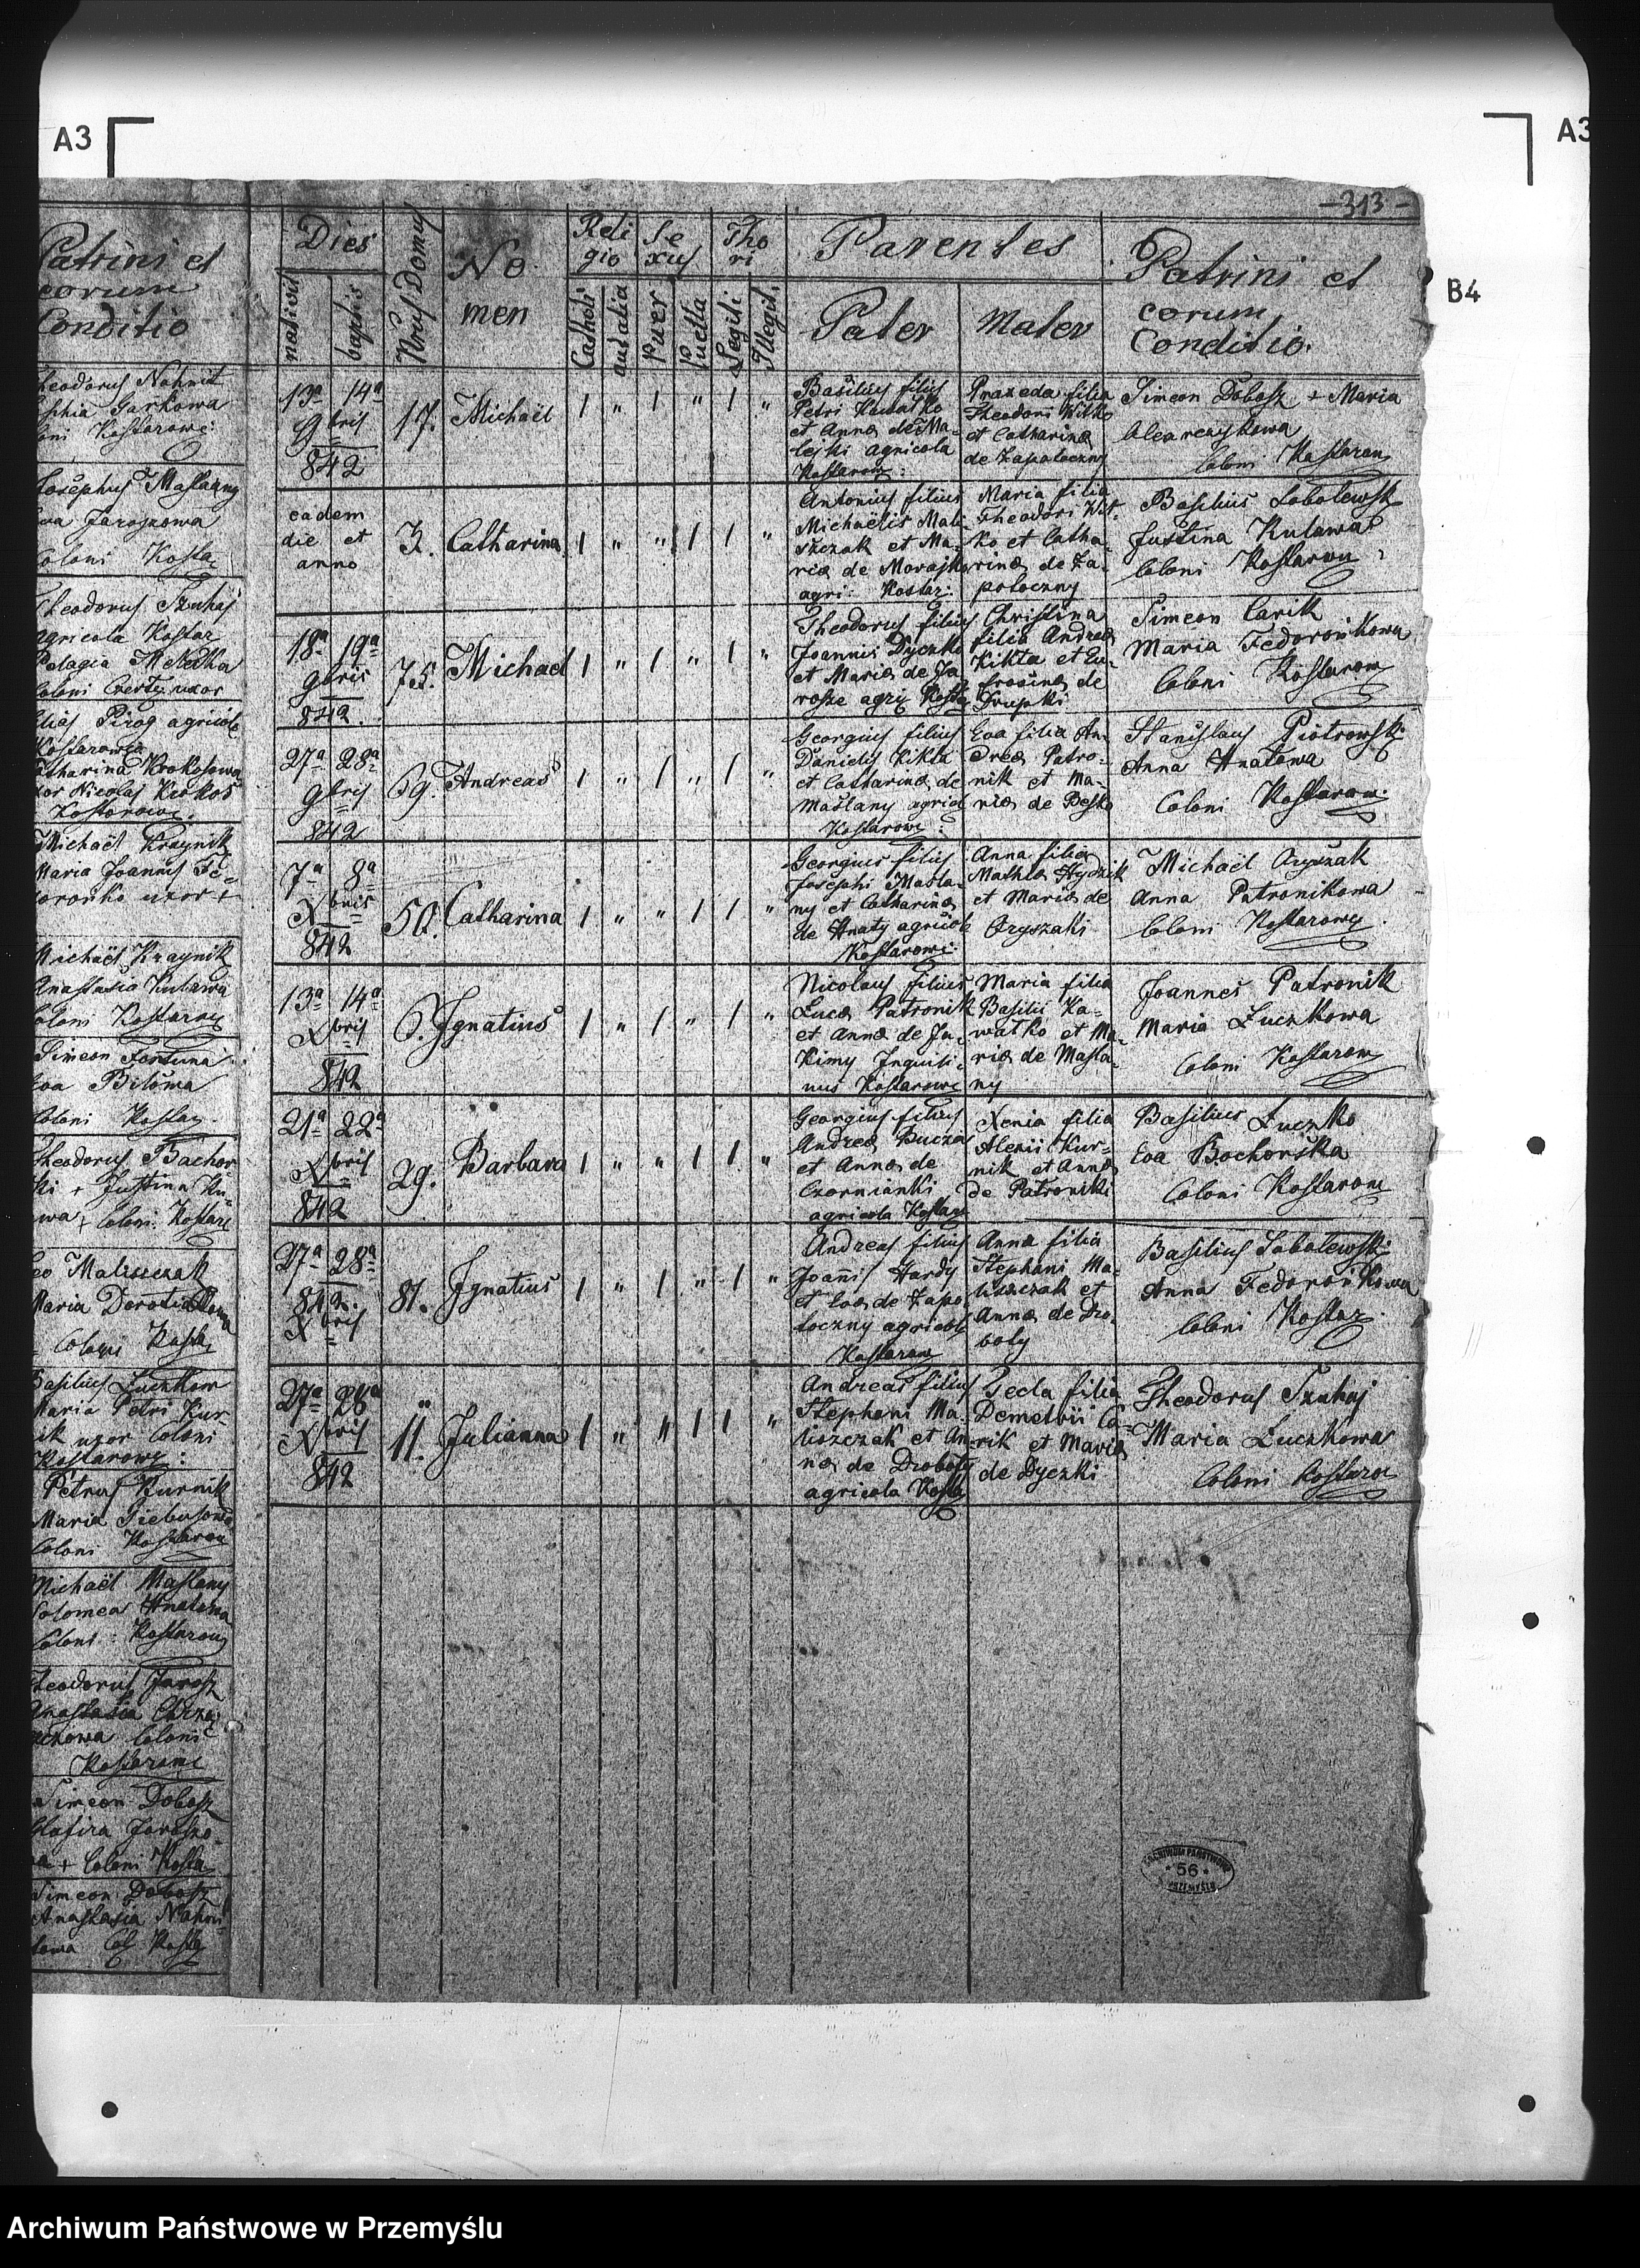 A3
A3
B4
-313-
Patrini et
eorum
Conditio
Theodorus Nahnit
Garkowa
Kostarowc:
Josephus Maslany
Eva Jaroszowa
Coloni Kosta
Theodorus Szuhaj
agricola Kostar
Pelagia
Coloni uxor
Elias Pirog agricola
Kostarowca
Catharina Krokosowa
uxor Nicolai Krokos
Kostarowc.
Michaël Kraynik
Maria Joannis Fe-
doronko uxor +
Michaël Kraynik
Anastasia Kulawa
Coloni Kostarow
Simeon Fortuna
Eva Bilowa
Coloni Kostar.
Theodorus Bachor
ski + Justina Ku-
lawa + Coloni Kostar
Leo Maliszczak
Maria
Coloni Kosta
Basilius Luczkow
Maria Petri Kur-
nik uxor Coloni
Kostarowc:
Petrus Kurnik
Maria
Coloni Kostarow
Michaël Maslany
Solomea Hnatowa
Coloni: Kostarow
Theodorus Jarosz
Anastasia
Coloni
Kostarowc
Simeon Dobosz
Glafira Jaroszo-
wa + Coloni Kosta
Simeon Dobosz
Anastasia Nahni-
towa Col Kosta
Dies
nativit
baptis
Nrus Domus
No
men
Reli
gio
Catholi
aut alia
Se
xus
Puer
Puella
Tho
ri
Legiti
Illegit.
Parentes
Pater
Mater
Patrini et
eorum
Conditio.
13a 14a
9bris
842
17. Michaël 1 " 1 " 1 "
Basilius filius
Petri Kawatko
et Anna de Ma-
lejki agricola
Kostarowc:
Praxeda filia
Theodori Witko
et Catharina
de Zapotoczny
Simeon Dobosz + Maria
Olearczykowa
Coloni Kostarow
eadem
die et
anno
3. Catharina 1 " " 1 1 "
Antonius filius
Michaëlis Mali-
szczak et Ma-
ria de
agri: Kostar:
Maria filia
Theodori Wit-
ko et Catha-
rina de Za-
potoczny
Basilius Sobolewsk
Justina Kulawa
Coloni Kostarow
18a 19a
9bris
842.
75. Michael 1 " 1 " 1 "
Theodorus filius
Joannis Dyczko
et Maria de Ja
rosze agri Kosta
Christina
filia Andrea
Kikta et Eu-
frosina de
Drupki
Simeon Carik
Maria Fedoronkowa
Coloni Kostarow
27a 28a
9bris
842
69. Andreas 1 " 1 " 1 "
Georgius filius
Danielis Kikta
et Catharina de
Maslany agricol
Kostarowc:
Eva filia An
drea Patro-
nik et Ma-
ria de Besko
Stanislaus Piotrowski
Anna Hnatowa
Coloni Kostarow:
7a 8a
Xbris
842
50. Catharina 1 " " 1 1 "
Georgius filius
Josephi Masla-
ny et Catharina
de Hnaty agricola
Kostarowc:
Anna filia
Mathia Hydzik
et Maria de
Oryszaki
Michaël Oryszak
Anna Patronikowa
Coloni Kostarowc
13a 14a
Xbris
842
6. Ignatius 1 " 1 " 1 "
Nicolaus filius
Luca Patronik
et Anna de Ja-
kimy Inquili-
nus Kostarowc
Maria filia
Basilii Ka-
watko et Ma-
ria de Masla-
ny
Joannes Patronik
Maria Luczkowa
Coloni Kostarow
21a 22a
Xbris
842
29. Barbara 1 " " 1 1 "
Georgius filius
Andrea Bucza
et Anna de
Czornianki
agricola Kostar
Xenia filia
Alexii Kur-
nik et Anna
de Patroniki
Basilius Luczko
Eva Bochorska
Coloni Kostarow
27a 28a
842.
Xbris
81. Ignatius 1 " 1 " 1 "
Andreas filius
Joani Hardy
et Eva de Zapo
toczny agricola
Kostarow
Anna filia
Stephani Ma-
liszczak et
Anna de Dro-
boty
Basilius Sobolewski
Anna Fedoronkowa
Coloni Kostar
27a 28a
Xbris
842
"
11. Julianna 1 " " 1 1 "
Andreas filius
Stephani Ma-
liszczak et An-
na de Droboty
agricola Kosta
Tecla filia
Demetrii Ca-
rik et Maria
de Dyczki
Theodorus Szuhaj
Maria Luczkowa
Coloni Kostarow
ARCHIWUM PAŃSTWOWE
* 56 *
PRZEMYŚLU
Archiwum Państwowe w Przemyślu